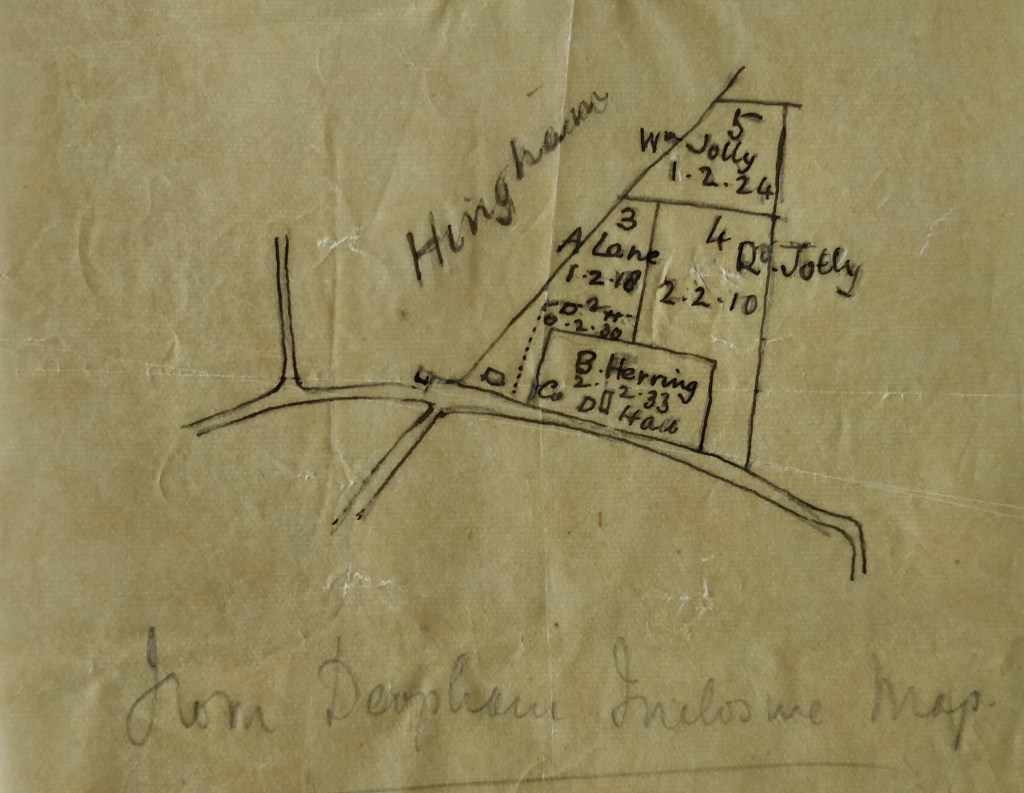 Hingham
5
Wm Jolly
1.2.24
3
A Lane
1.2.18
4
Rd. Jolly
2.2.10
0.2.30
B. Herring
2.2.33
Co
Hall
From Deopham Inclosure Map.